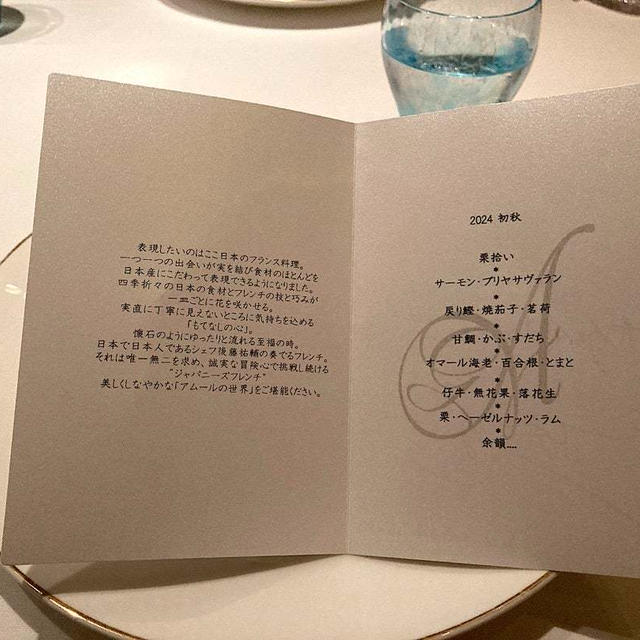 表現したいのはここ日本のフランス料理。
一つ一つの出会いが実を結び食材のほとんどを
日本産にこだわって表現できるようになりました。
四季折々の日本の食材とフレンチの技と巧みが
一皿ごとに花を咲かせる。
実直に丁寧に見えないところに気持ちを込める
「もてなしの心」。
懐石のようにゆったりと流れる至福の時。
日本で日本人であるシェフ後藤祐輔の奏でるフレンチ。
それは唯一無二を求め、誠実な冒険心で挑戦し続ける
"ジャパニーズフレンチ"
美しくしなやかな「アムールの世界」をご堪能ください。
2024 初秋
栗拾い
*
サーモン・ブリヤサヴァラン
*
戻り鰹・焼茄子・茗荷
*
甘鯛・かぶ・すだち
*
オマール海老・百合根・とまと
*
仔牛・無花果・落花生
*
栗・ヘーゼルナッツ・ラム
*
余韻....
A